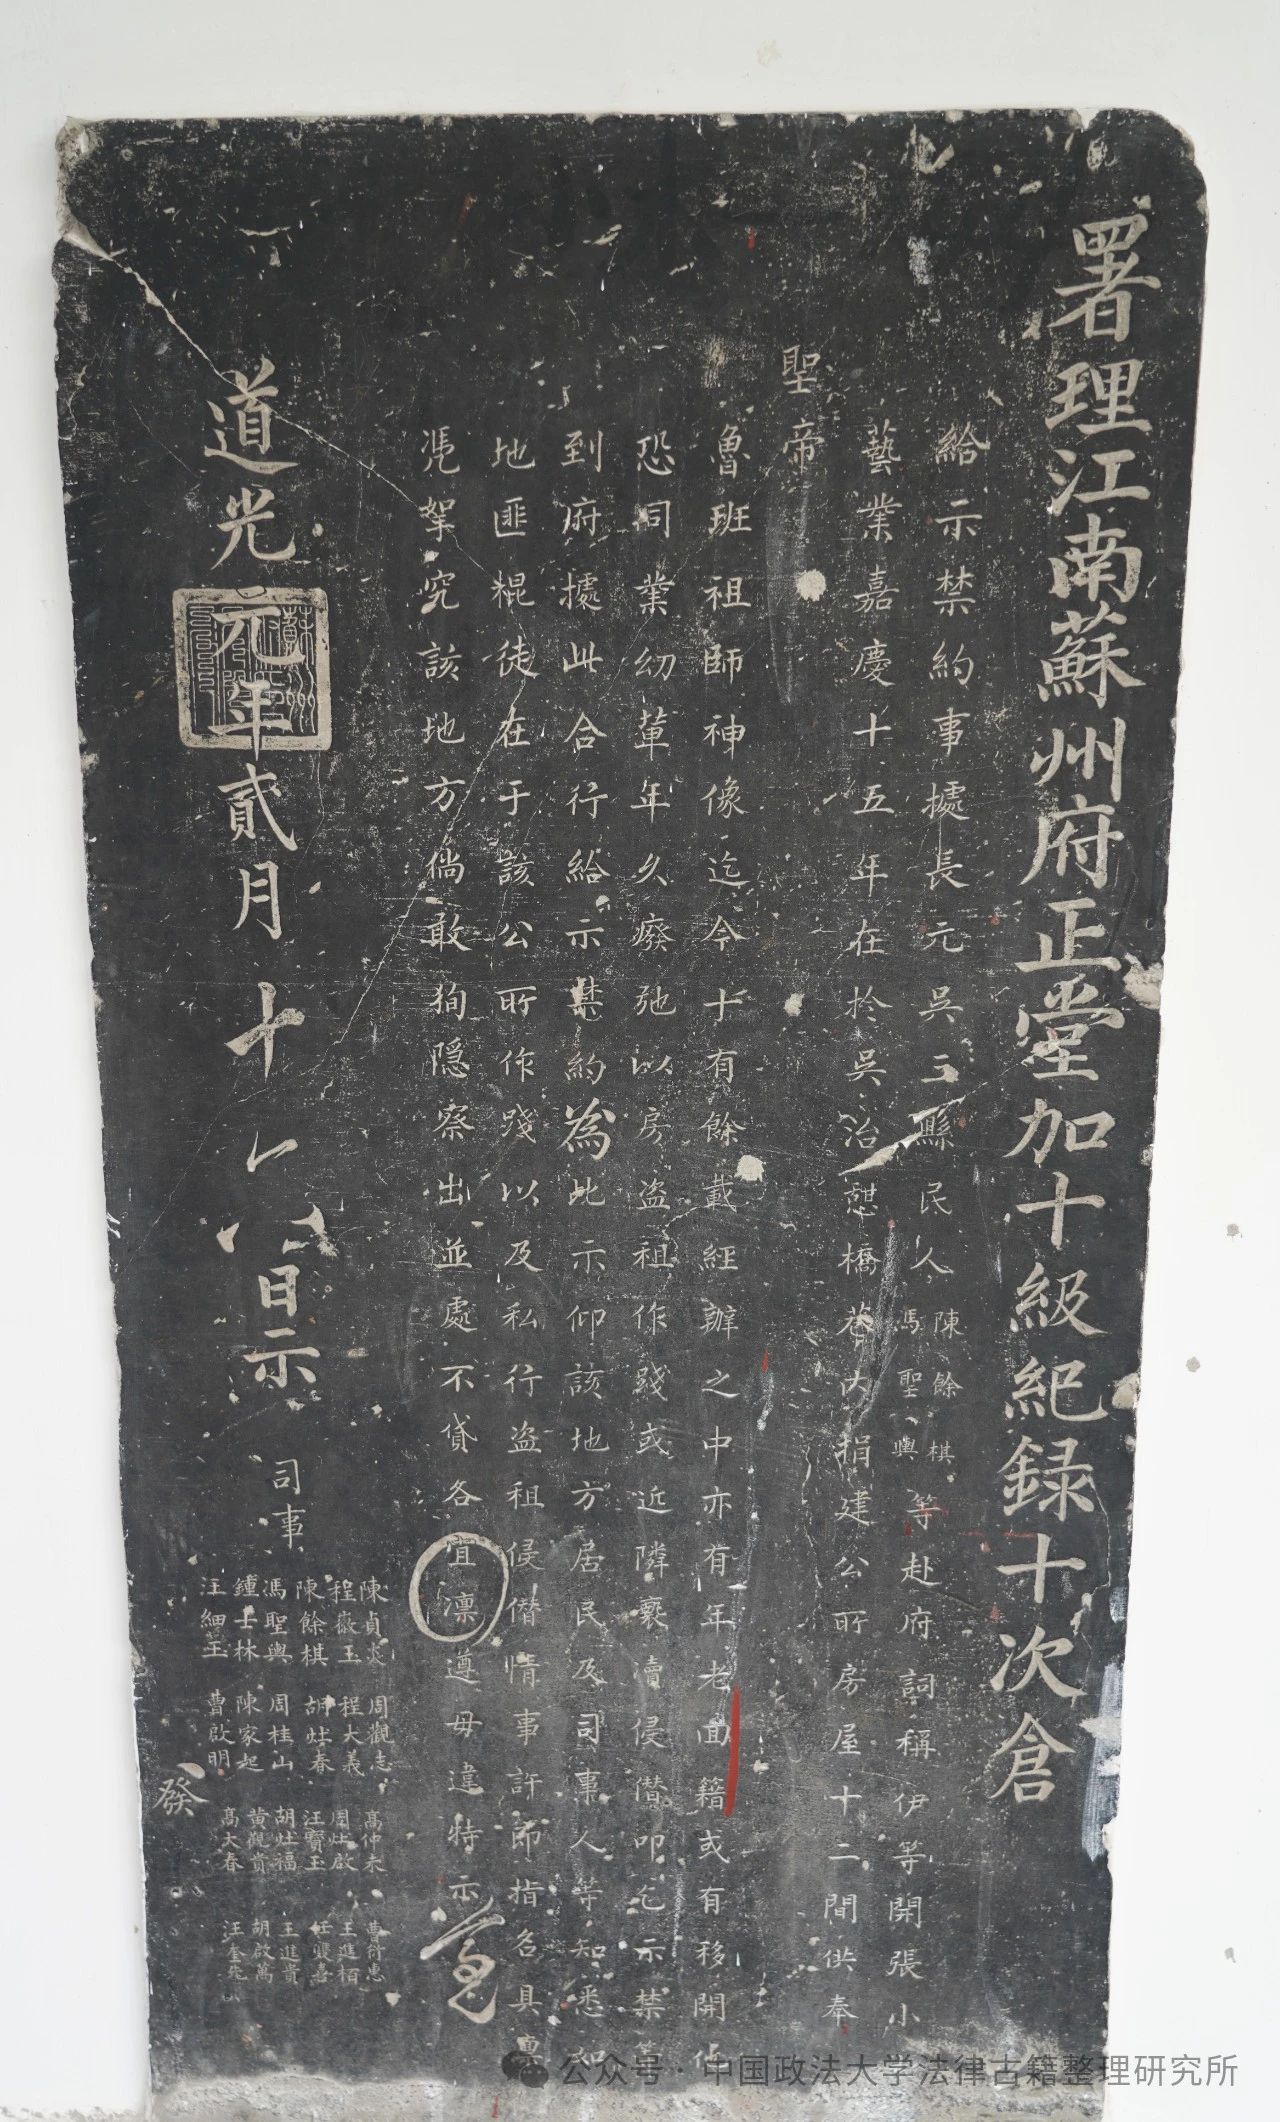 署理江南蘇州府正堂加十級紀録十次倉
給示禁約事據長元吳三縣民人陳餘棋馮聖興等赴府詞稱伊等開張小
藝業嘉慶十五年在於吳治憇橋巷大捐建公所房屋十二間供奉
聖帝
魯班祖師神像迄今十有餘載經辦之中亦有年老回籍或有移開
恐同業幼輩年久癈弛以房盜租作踐或近隣褻瀆侵僭叩乞示禁等
到府據此合行給示禁約為此示仰該地方居民及司事人等知悉如
地匪棍徒在于該公所作踐以及私行盜租侵僭情事許即指名具稟
凴拏究該地方倘敢狥隠察出並處不貸各宜凛遵毋違特示
道光元年貳月十 日示
司事
陳貞炎 周觀志 高仲未 曹衍惠
程啟玉 程大義 周灶啟 王進栢
陳餘棋 胡灶春 汪寶玉 任雙喜
馮聖興 周桂山 胡灶福 王進貴
鍾士林 陳家起 黄觀貴 胡啟萬
汪細玉 曹啟明 高大春 汪奎先
發
公众号 · 中国政法大学法律古籍整理研究所